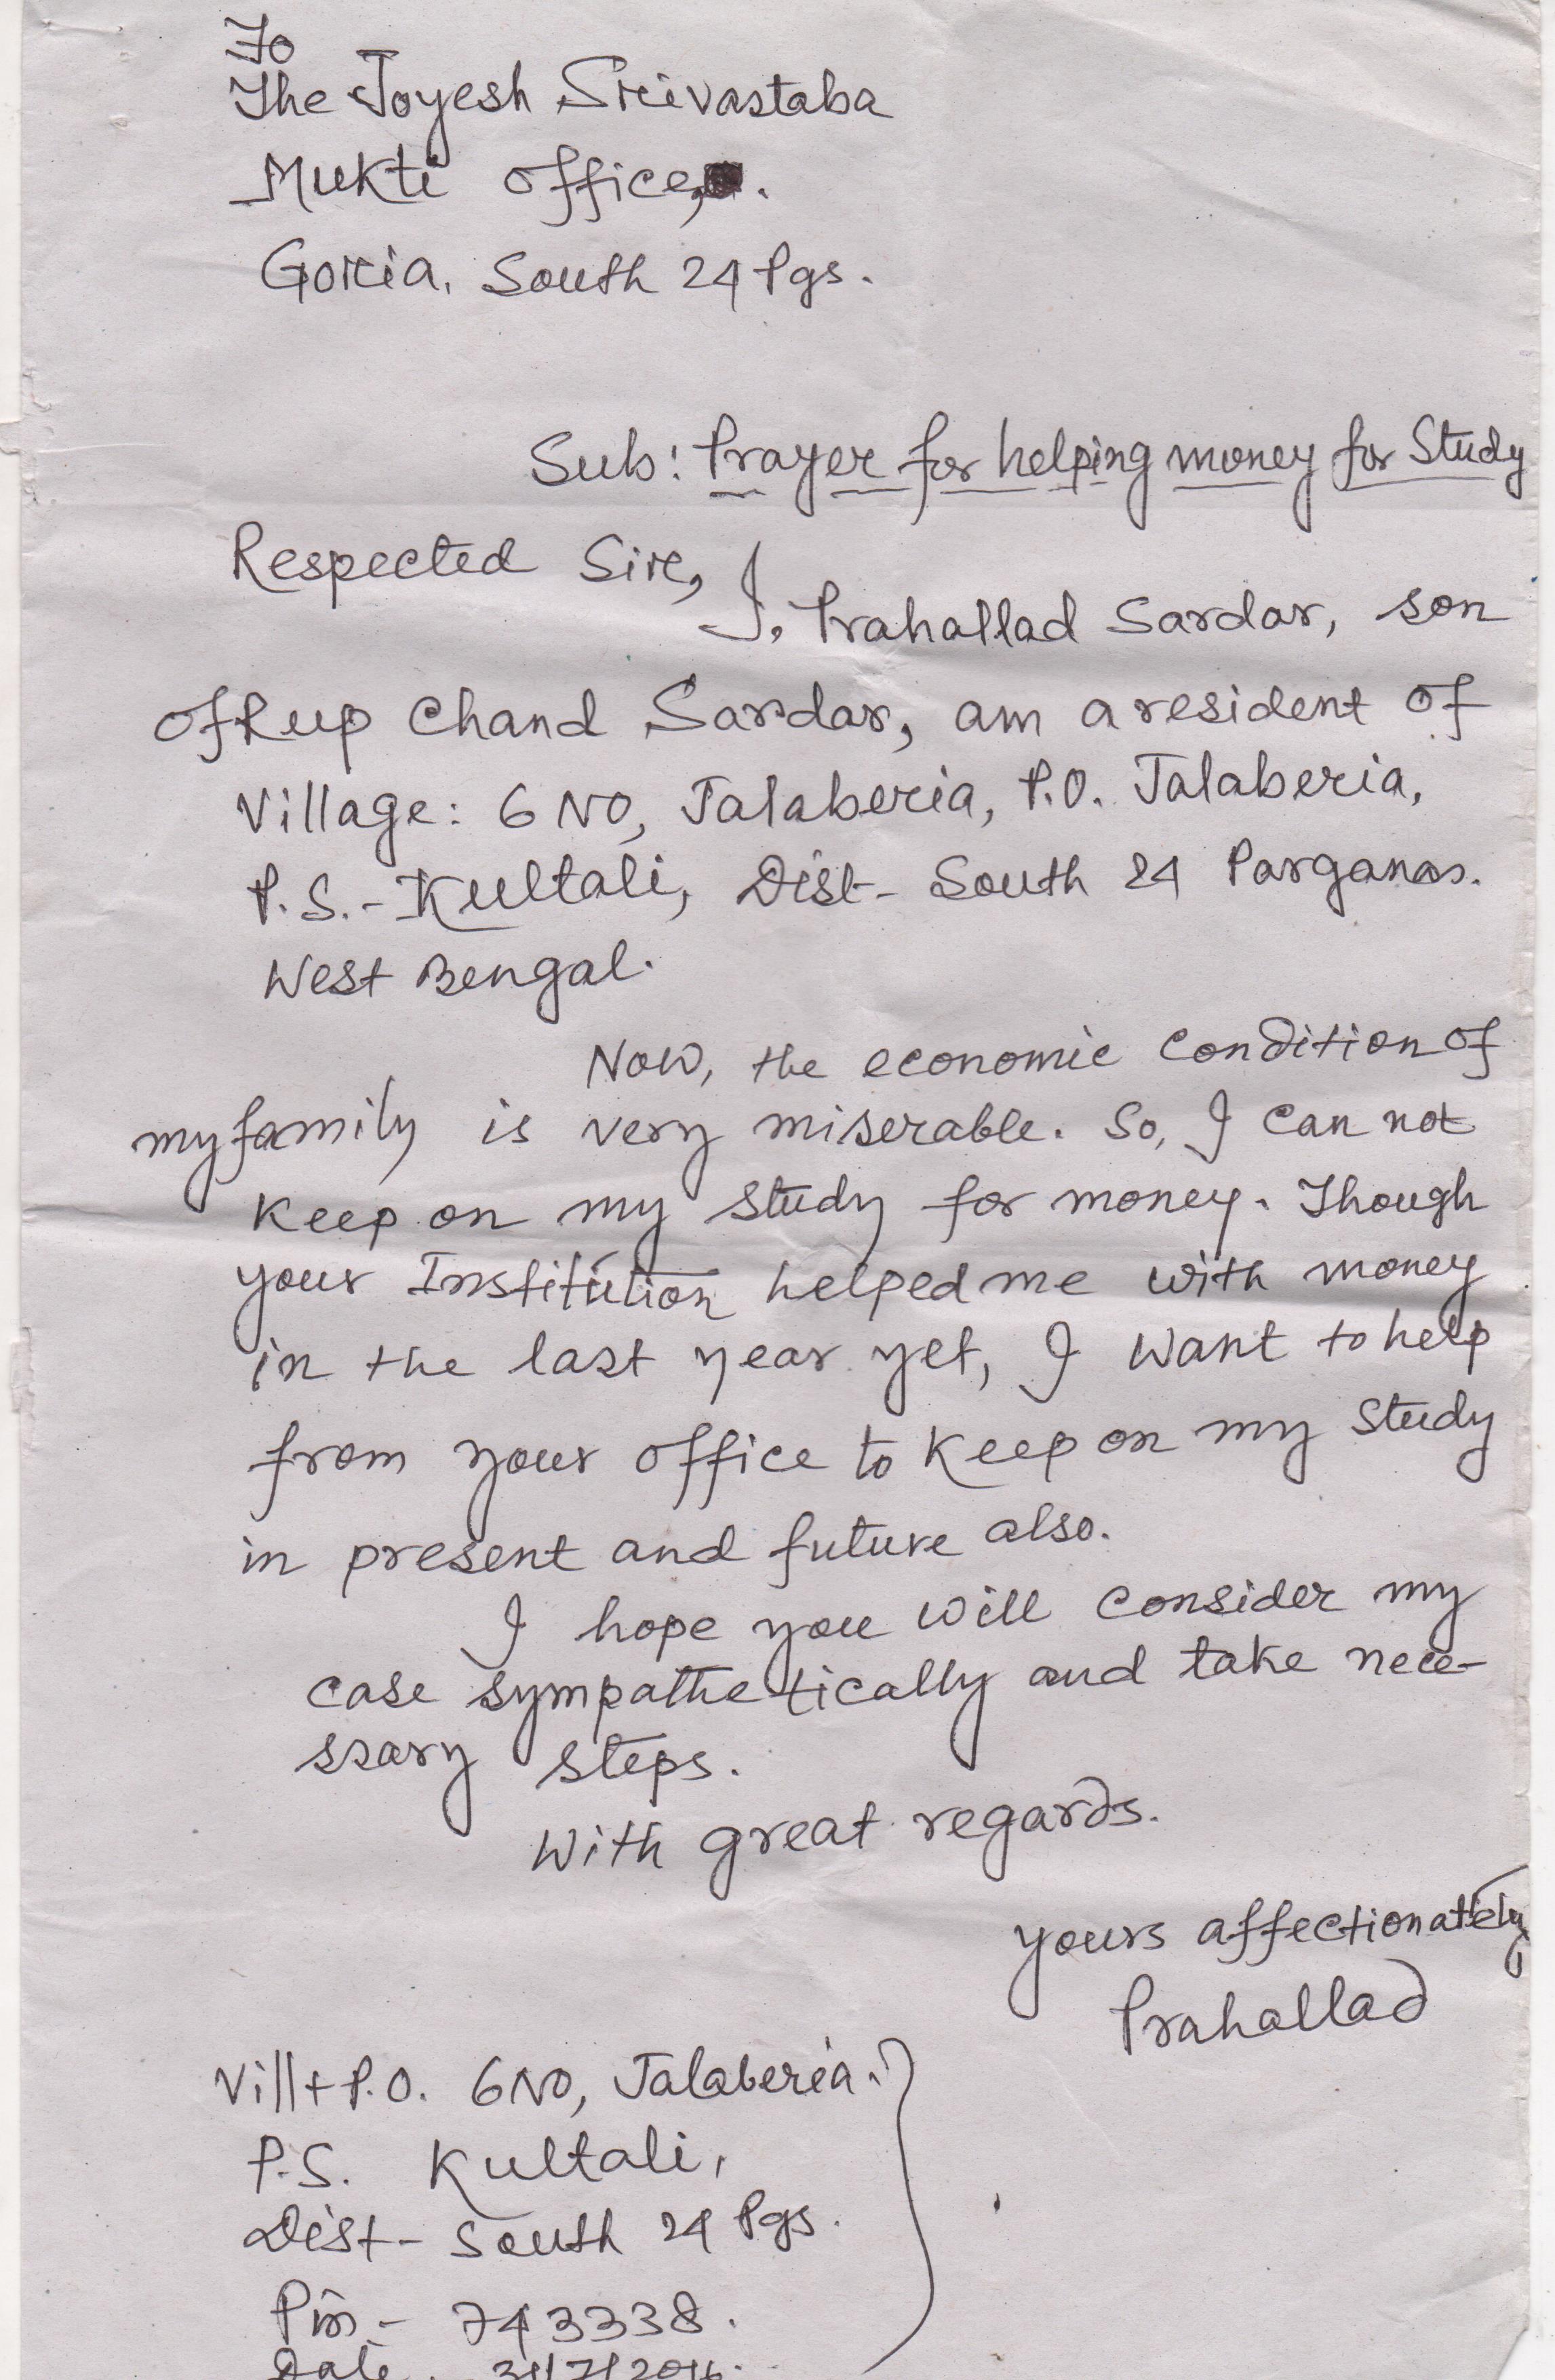 To
The Joyesh Srivastaba
Mukti office,.
Goria, South 24 Pgs.
Sub: Prayer for helping money for Study
Respected Sir,
I, Prahallad Sardar, son
of Rup Chand Sardar, am a resident of
Village: 6 NO, Jalaberia, P.O. Jalaberia,
P.S.- Kultali, Dist- South 24 Parganas.
West Bengal.
Now, the economic condition of
my family is very miserable. So, I can not
keep on my study for money. Though
your Institution helped me with money
in the last year yet, I want to help
from your office to keep on my study
in present and future also.
I hope you will consider my
case sympathetically and take nece-
ssary steps.
With great regards.
yours affectionately
Prahallad
Vill+P.O. 6NO, Jalaberia.
P.S. Kultali,
Dist- South 24 Pgs.
Pin- 743338.
Date.